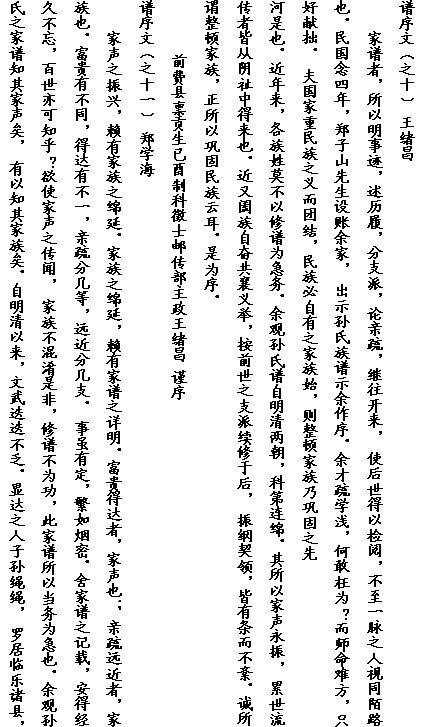 谱序文（之十） 王绪昌
家谱者，所以明事迹，述历履，分支派，论亲疏，继往开来，使后世得以检阅，不至一脉之人视同陌路
也。民国念四年，郑子山先生设账余家，出示孙氏族谱示余作序。余才疏学浅，何敢枉为？而师命难方，只
好献拙。 夫国家重民族之义而团结，民族必自有之家族始，则整顿家族乃巩固之先
河是也。近年来，各族姓莫不以修谱为急务。余观孙氏谱自明清两朝，科第连绵。其所以家声永振，累世流
传者皆从阴祉中得来也。近又阖族自奋共襄义举，按前世之支派续修于后，振纲契领，皆有条而不紊。诚所
谓整顿家族，正所以巩固民族云耳。是为序。
前费县禀贡生已酉制科徵士邮传部主政王绪昌 谨序
谱序文（之十一） 郑学海
家声之振兴，赖有家族之绵延。家族之绵延，赖有家谱之详明。富贵得达者，家声也；；亲疏远近者，家
族也。富贵有不同，得达有不一，亲疏分几等，远近分几支。事虽有定，繁如烟密。舍家谱之记载，安得经
久不忘，百世亦可知乎？欲使家声之传闻，家族不混淆是非，修谱不为功，此家谱所以当务为急也。余观孙
氏之家谱知其家声矣，有以知其家族矣。自明清以来，文武迭迭不乏。显达之人子孙绳绳，罗居临乐诸县，